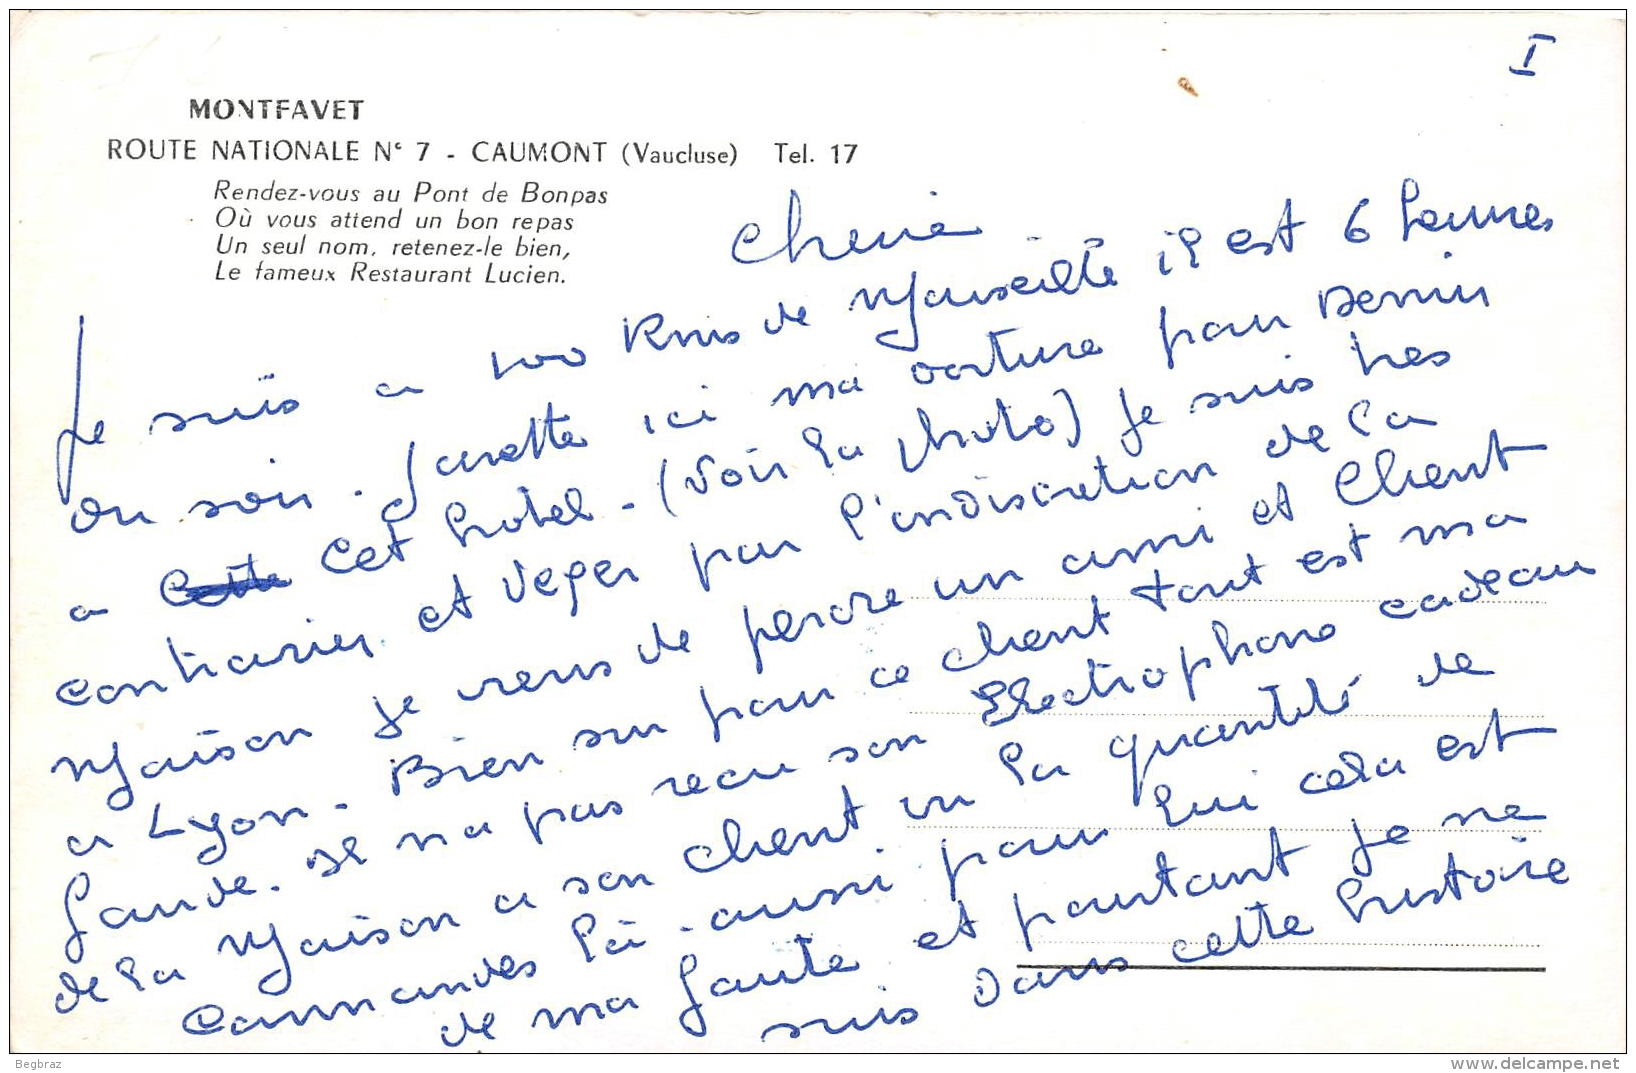 I
MONTFAVET
ROUTE NATIONALE N° 7 - CAUMONT (Vaucluse) Tel. 17
Rendez-vous au Pont de Bonpas
Où vous attend un bon repas
Un seul nom, retenez-le bien,
Le fameux Restaurant Lucien.
Cherie
Je suis a 100 Kms de Marseille il est 6 heures
du soir. J'arrette ici ma voiture pour Dormir
a cette cet hotel - (voir la photo) je suis tres
contrarier et veper par l'indiscretion de la
Maison je viens de perdre un ami et Client
a Lyon. Bien sur pour ce client tout est ma
faute. Il n'a pas recu son Electrophone cadeau
de la Maison a son client vu la quantité de
commandes là. aussi pour lui cela est
de ma faute et pourtant je ne
suis dans cette histoire
Begbraz
www.delcampe.net